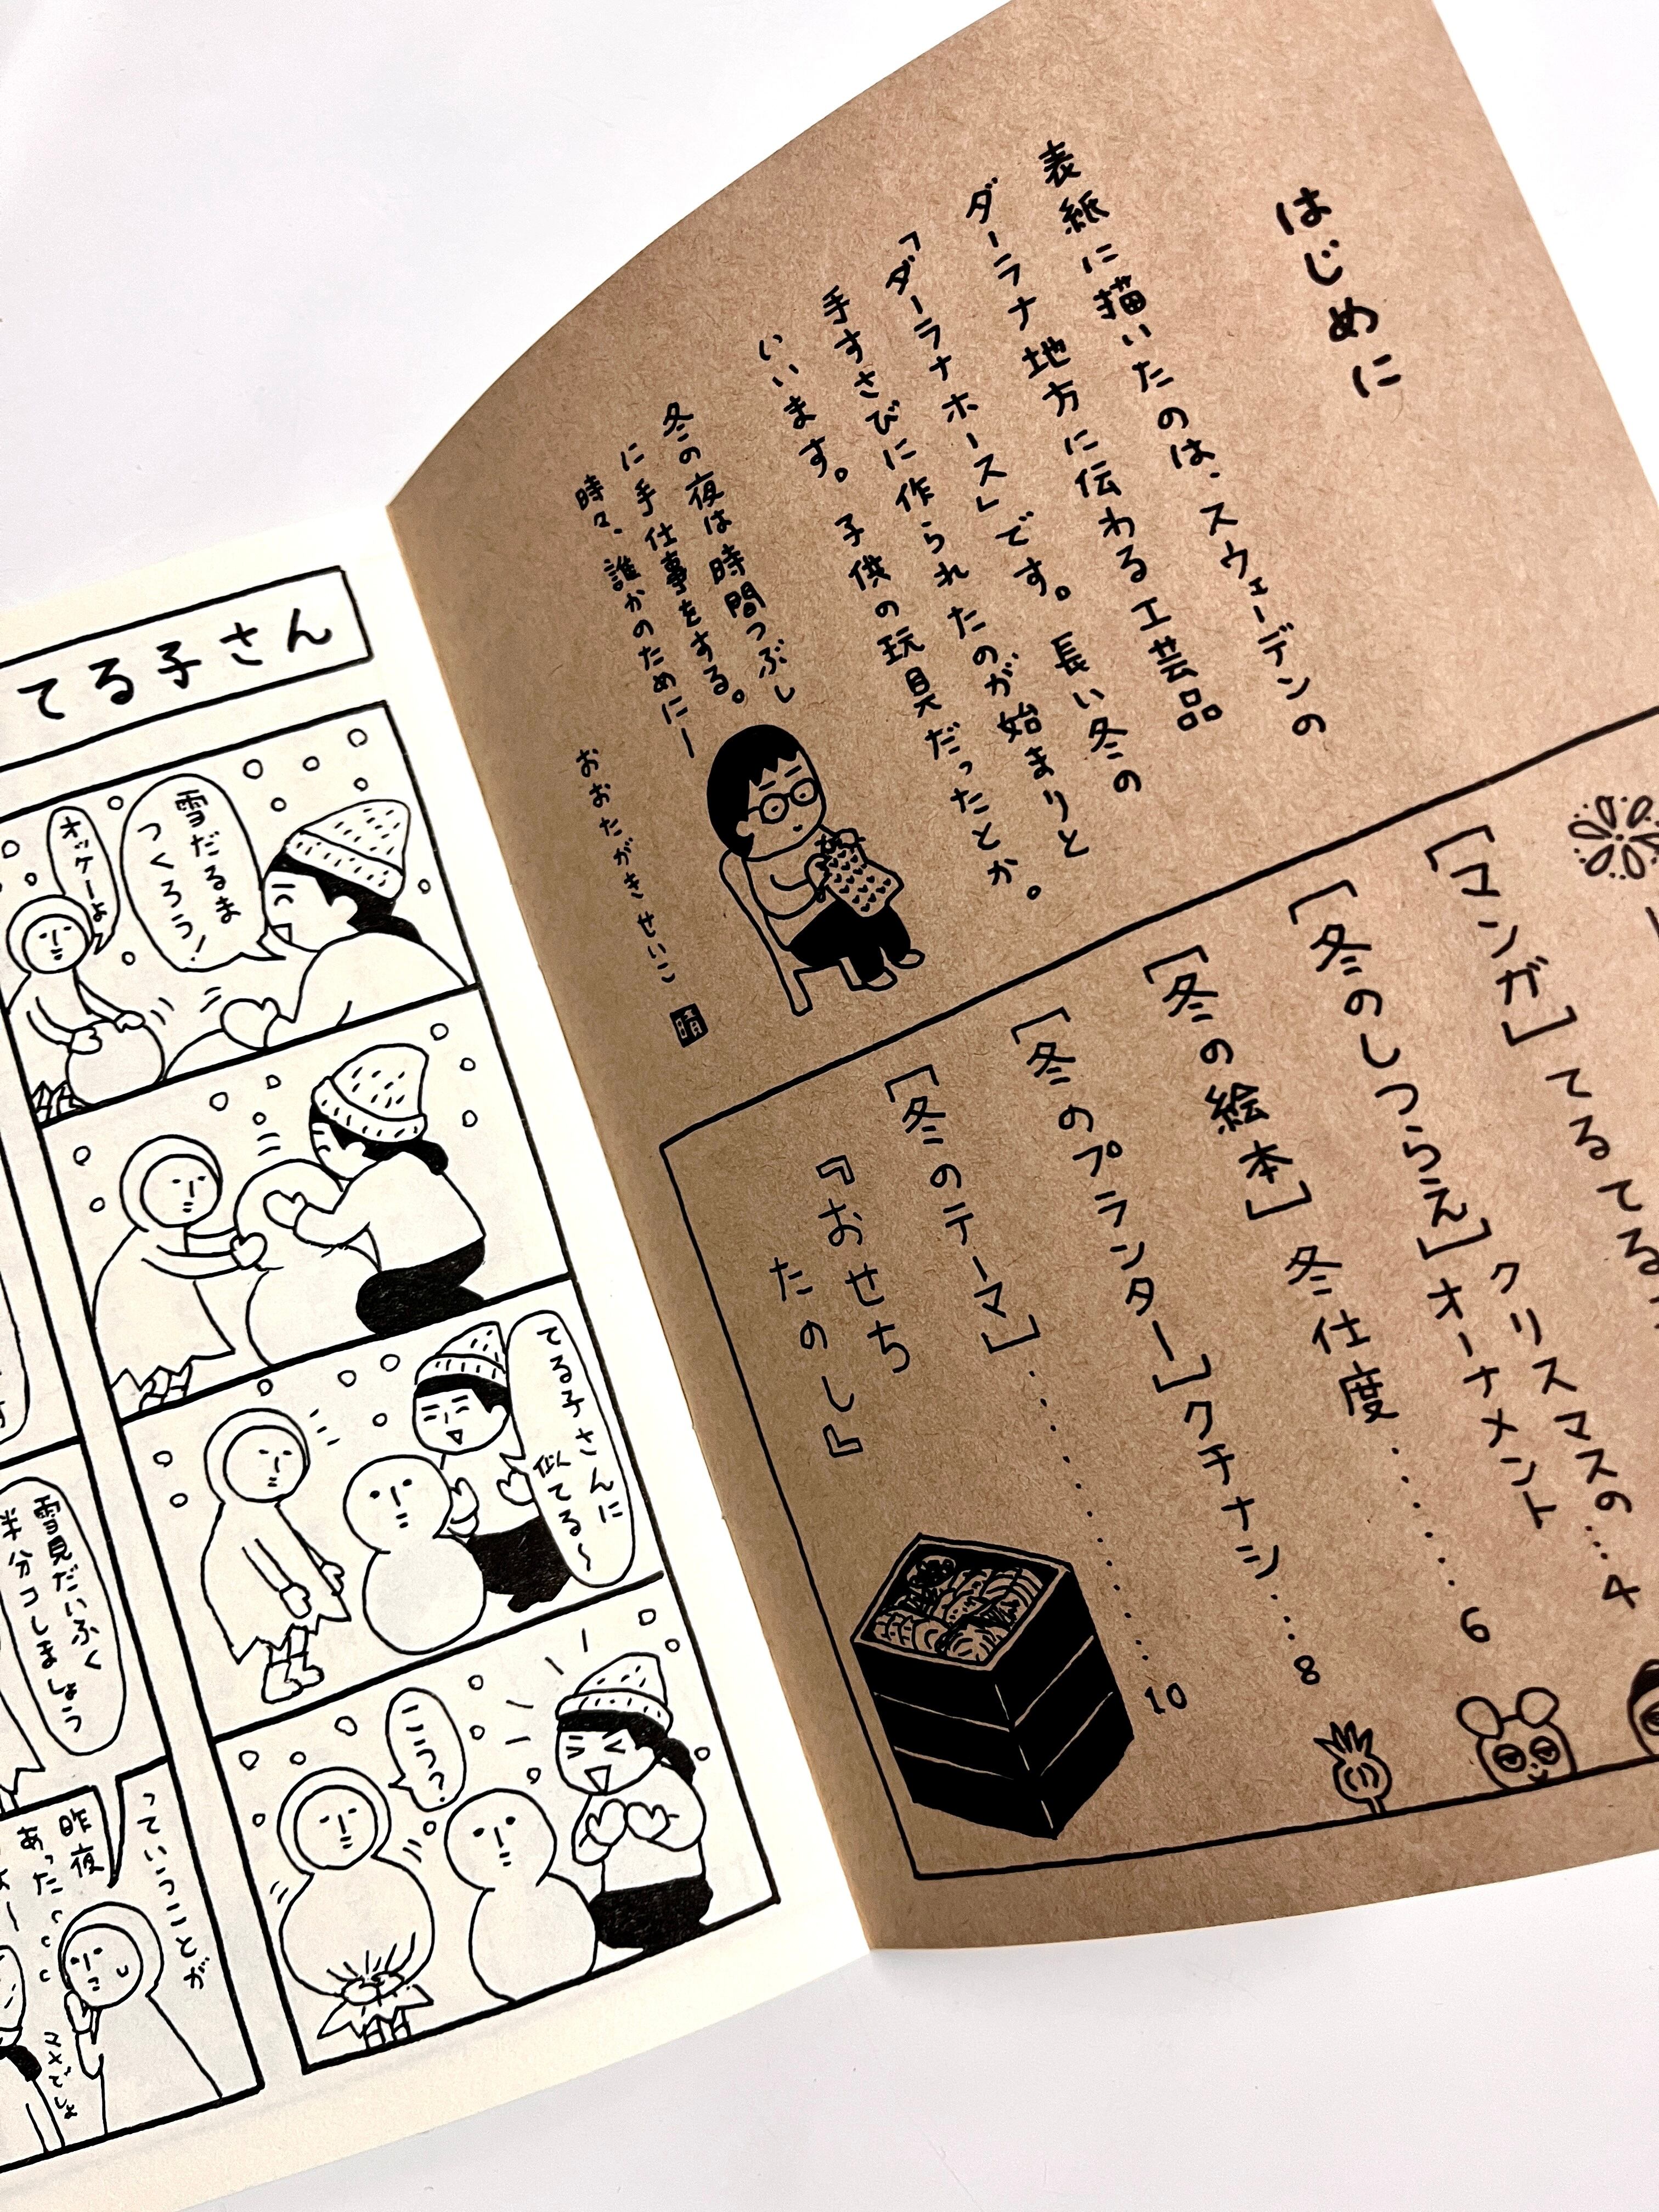 はじめに
表紙に描いたのは、スウェーデンの
ダーラナ地方に伝わる工芸品
「ダーラナホース」です。長い冬の
手すさびに作られたのが始まりと
いいます。子供の玩具だったとか。
冬の夜は時間つぶし
に手仕事をする。
時々、誰かのためにー
おおたがきせいこ
晴
[マンガ]てるてる
[冬のしつらえ]クリスマスの
オーナメント…4
[冬の絵本]冬仕度・・・・・・6
[冬のプランター]クチナシ…8
[冬のテーマ]・・・・・・・・・・・・10
『おせち
たのし』
てる子さん
雪だるま
つくろう!
オッケーよ
てる子さんに
似てる〜
こうつ?
雪見だいふく
半分コしましょう
っていうことが
昨夜
あった